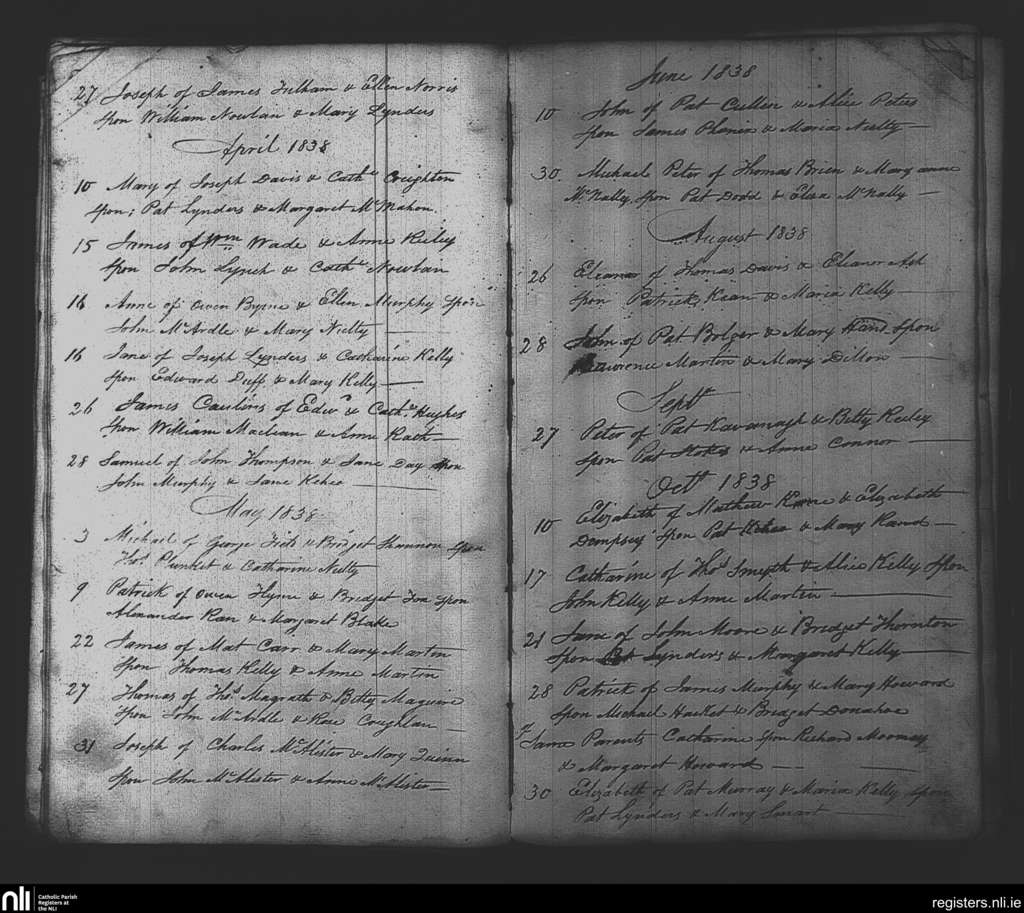 27 Joseph of James Fulham & Ellen Norris
Spon William Nowlan & Mary Lynders
April 1838
10 Mary of Joseph Davis & Cathe Creighton
Spon; Pat Lynders & Margaret McMahon
15 James of Wm Wade & Anne Kieley
Spon John Lynch & Cathe Nowlan
16 Anne of Owen Byrne & Ellen Murphy Spon
John McArdle & Mary Nulty
16 Jane of Joseph Lynders & Catharine Kelly
Spon Edward Duff & Mary Kelly
26 James of Edwd & Cathe Hughes
Spon William & Anne Rath
28 Samuel of John Thompson & Jane Day Spon
John Murphy & Jane Kehoe
May 1838
3 Michael of George & Bridget Shannon Spon
Thos Plunket & Catharine Nulty
9 Patrick of Owen & Bridget Fox Spon
Alexander & Margaret Blake
22 James of Mat Carr & Mary Martin
Spon Thomas Kelly & Anne Martin
27 Thomas of Thos Magrath & Betty Maguire
Spon John McArdle & Rose Coughlan
31 Joseph of Charles McAlister & Mary Quinn
Spon John McAlister & Anne McAlister
June 1838
10 John of Pat Cullen & Alice Peters
Spon James & Maria Nulty
30 Michael Peter of Thomas Brien & Mary anne
McNally Spon Pat Dodd & Eliza McNally
August 1838
26 Eleanor of Thomas Davis & Eleanor Ash
Spon Patrick & Maria Kelly
28 John of Pat Bolger & Mary Hand Spon
Lawrence Martin & Mary Dillon
Sept
27 Peter of Pat Kavanagh & Betty Kieley
Spon Pat Stokes & Anne Connor
Oct 1838
10 Elizabeth of Mathew Kane & Elizabeth
Dempsey Spon Pat & Mary
17 Catharine of Thos Smyth & Alice Kelly Spon
John Kelly & Anne Martin
21 Jane of John Moore & Bridget Thornton
Spon Pat Lynders & Margaret Kelly
28 Patrick of James Murphy & Mary Howard
Spon Michael Hacket & Bridget Donahoe
Same Parents Catharine Spon Richard Mooney
& Margaret Howard
30 Elizabeth of Pat Murray & Maria Kelly Spon
Pat Lynders & Mary Smart
nli Catholic Parish
Registers at
the NLI
registers.nli.ie